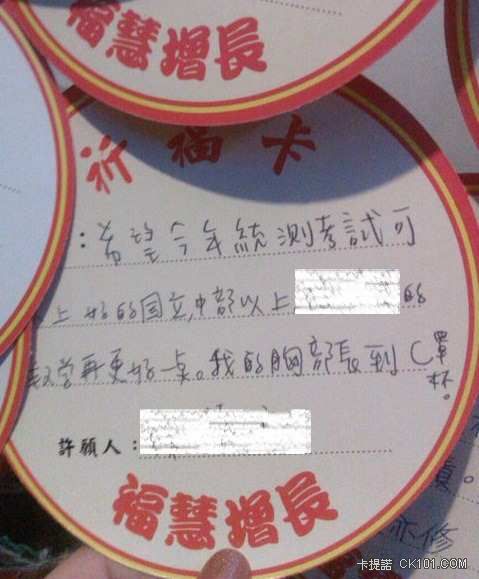 福慧增長
祈福卡
：希望今年統測考試可
上好的国立,中部以上
的
数学再更好一點。我的胸部長到C罩
杯。
許願人：
福慧增長
亦修
卡提諾 CK101.COM